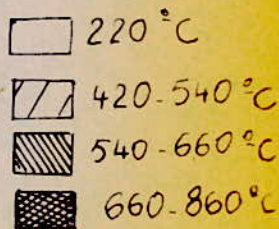 220 ºC
420-540 ºC
540-660 ºC
660-860 ºC